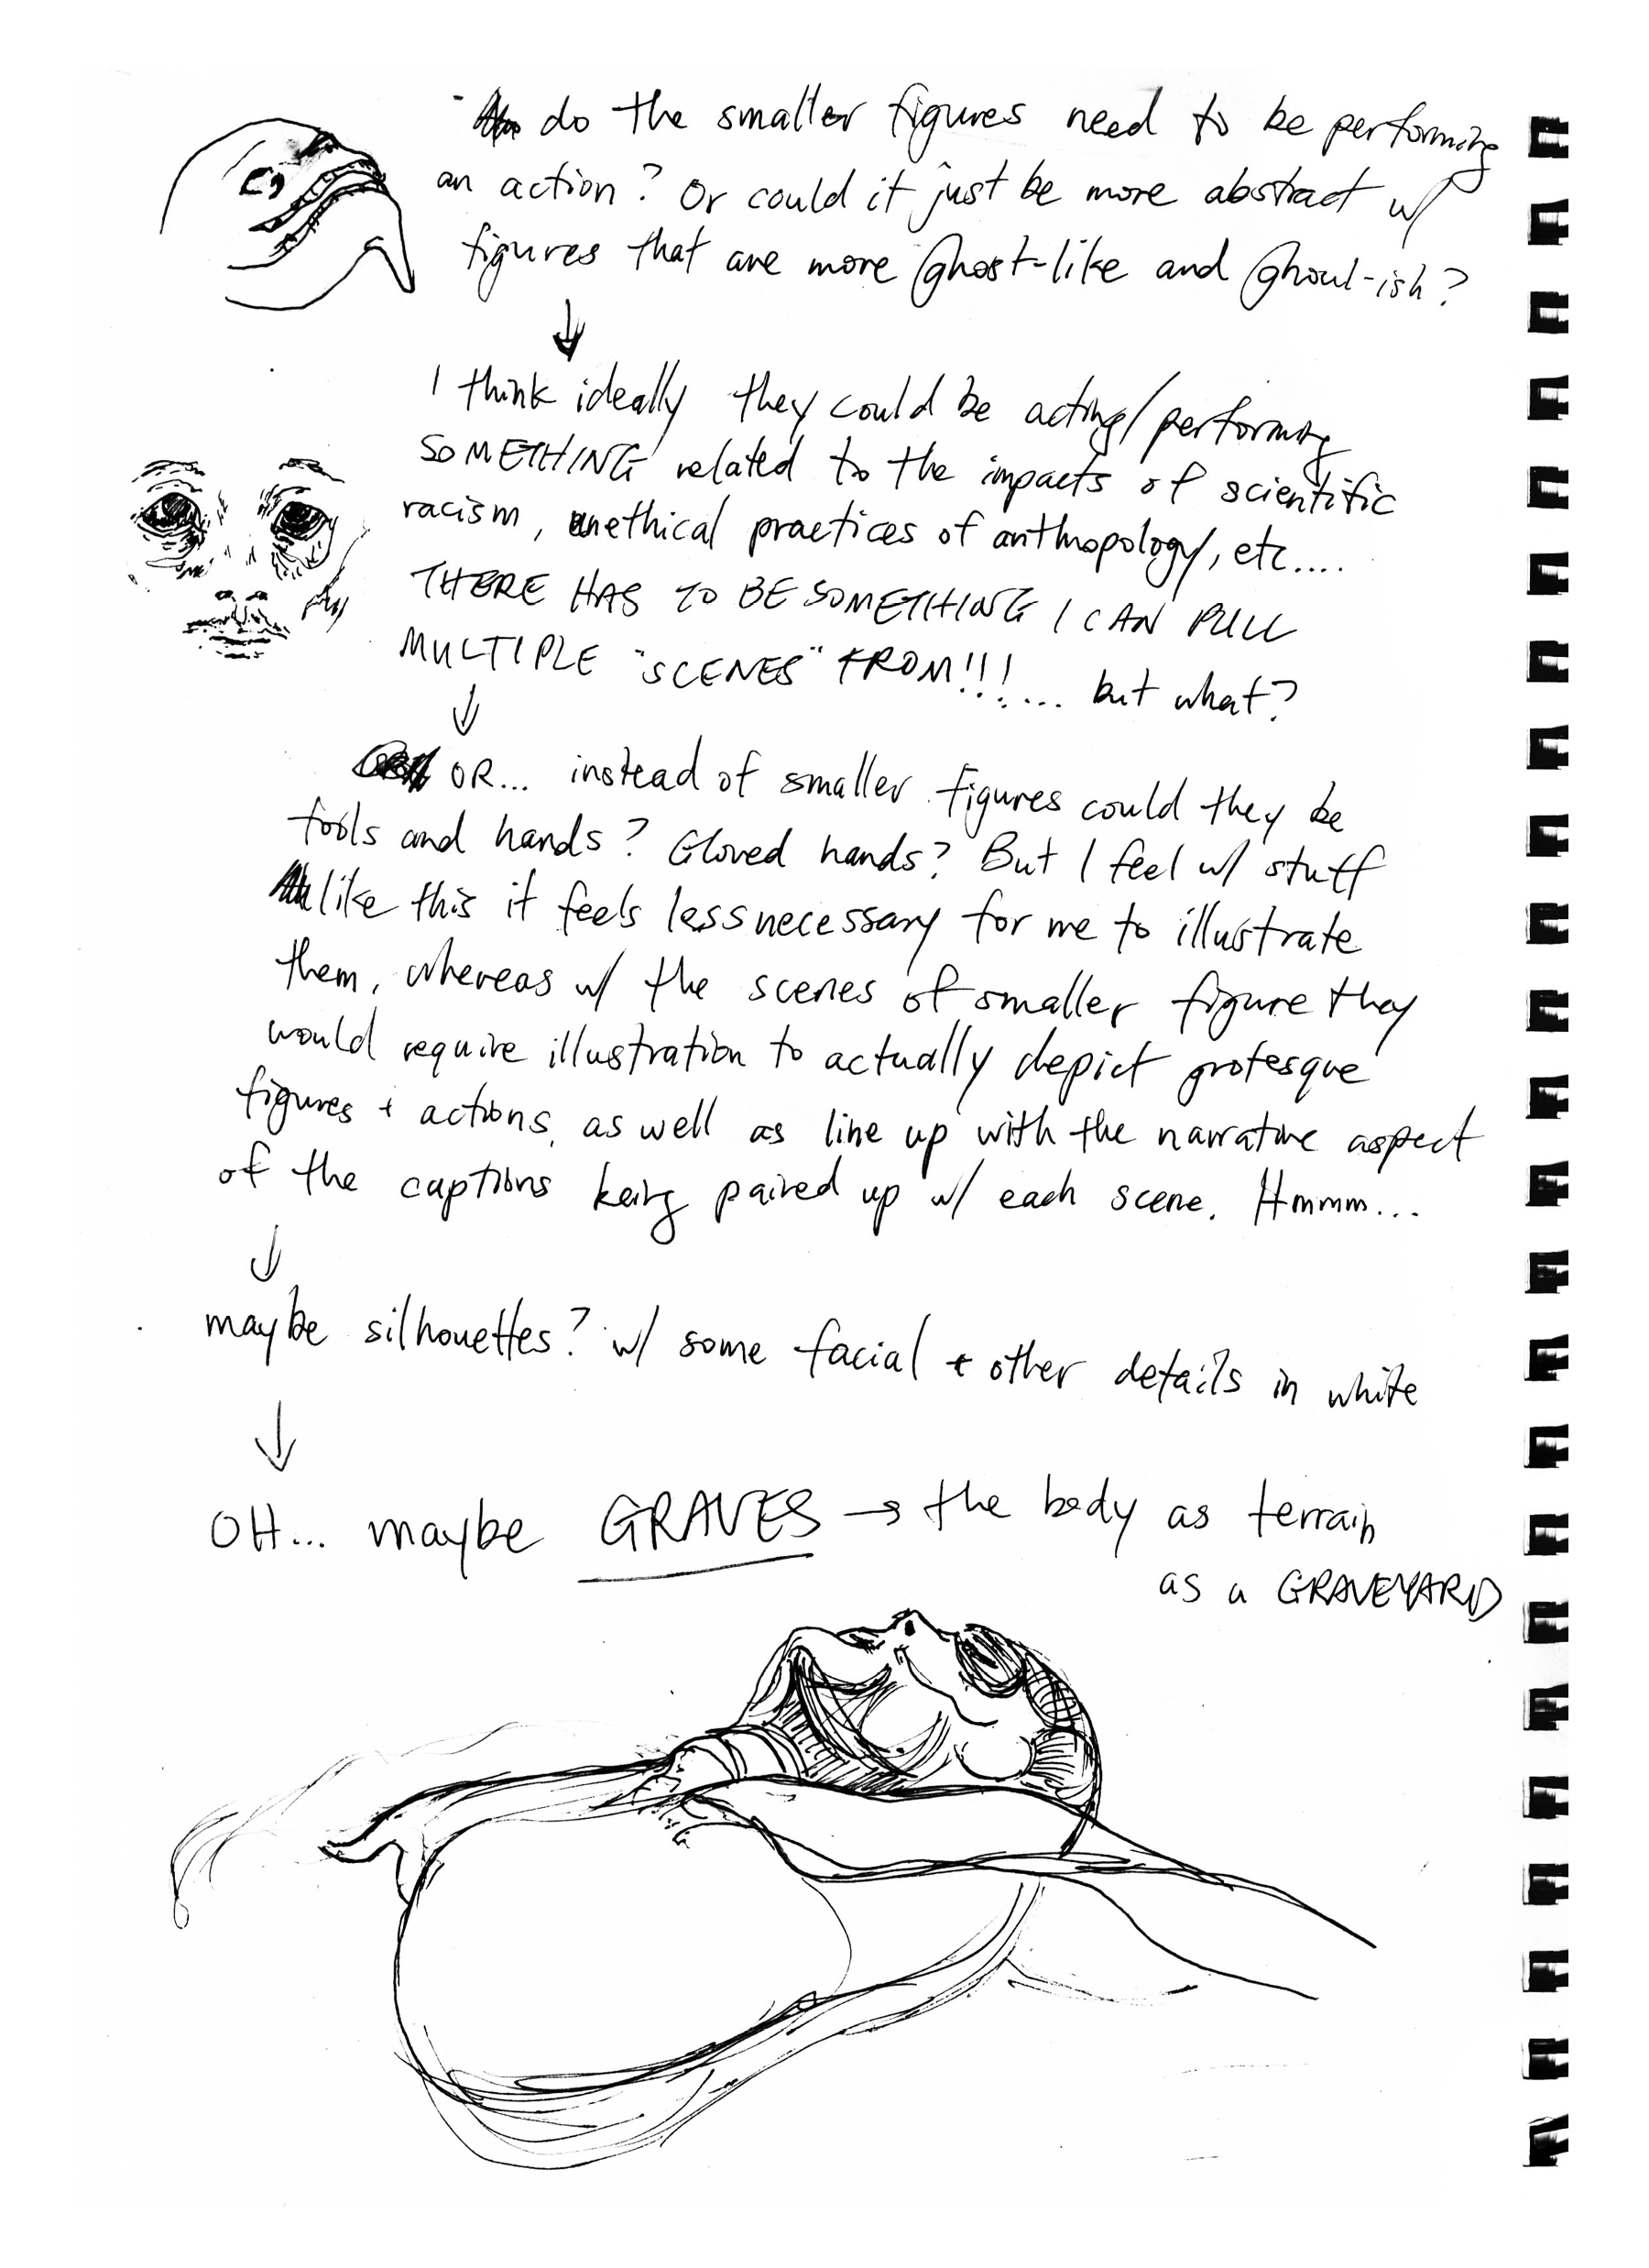 - do the smaller figures need to be performing
an action? Or could it just be more abstract w/
figures that are more Ghost-like and Ghoul-ish?
I think ideally they could be acting/performing
SOMETHING related to the impacts of scientific
racism, unethical practices of anthropology, etc....
THERE HAS TO BE SOMETHING I CAN PULL
MULTIPLE "SCENES" FROM!!!.... but what?
OR... instead of smaller figures could they be
tools and hands? Gloved hands? But I feel w/ stuff
like this it feels less necessary for me to illustrate
them, whereas w/ the scenes of smaller figure they
would require illustration to actually depict grotesque
figures + actions, as well as line up with the narrative aspect
of the captions being paired up w/ each scene. Hmmm...
maybe silhouettes? w/ some facial + other details in white
OH... maybe GRAVES → the body as terrain
as a GRAVEYARD